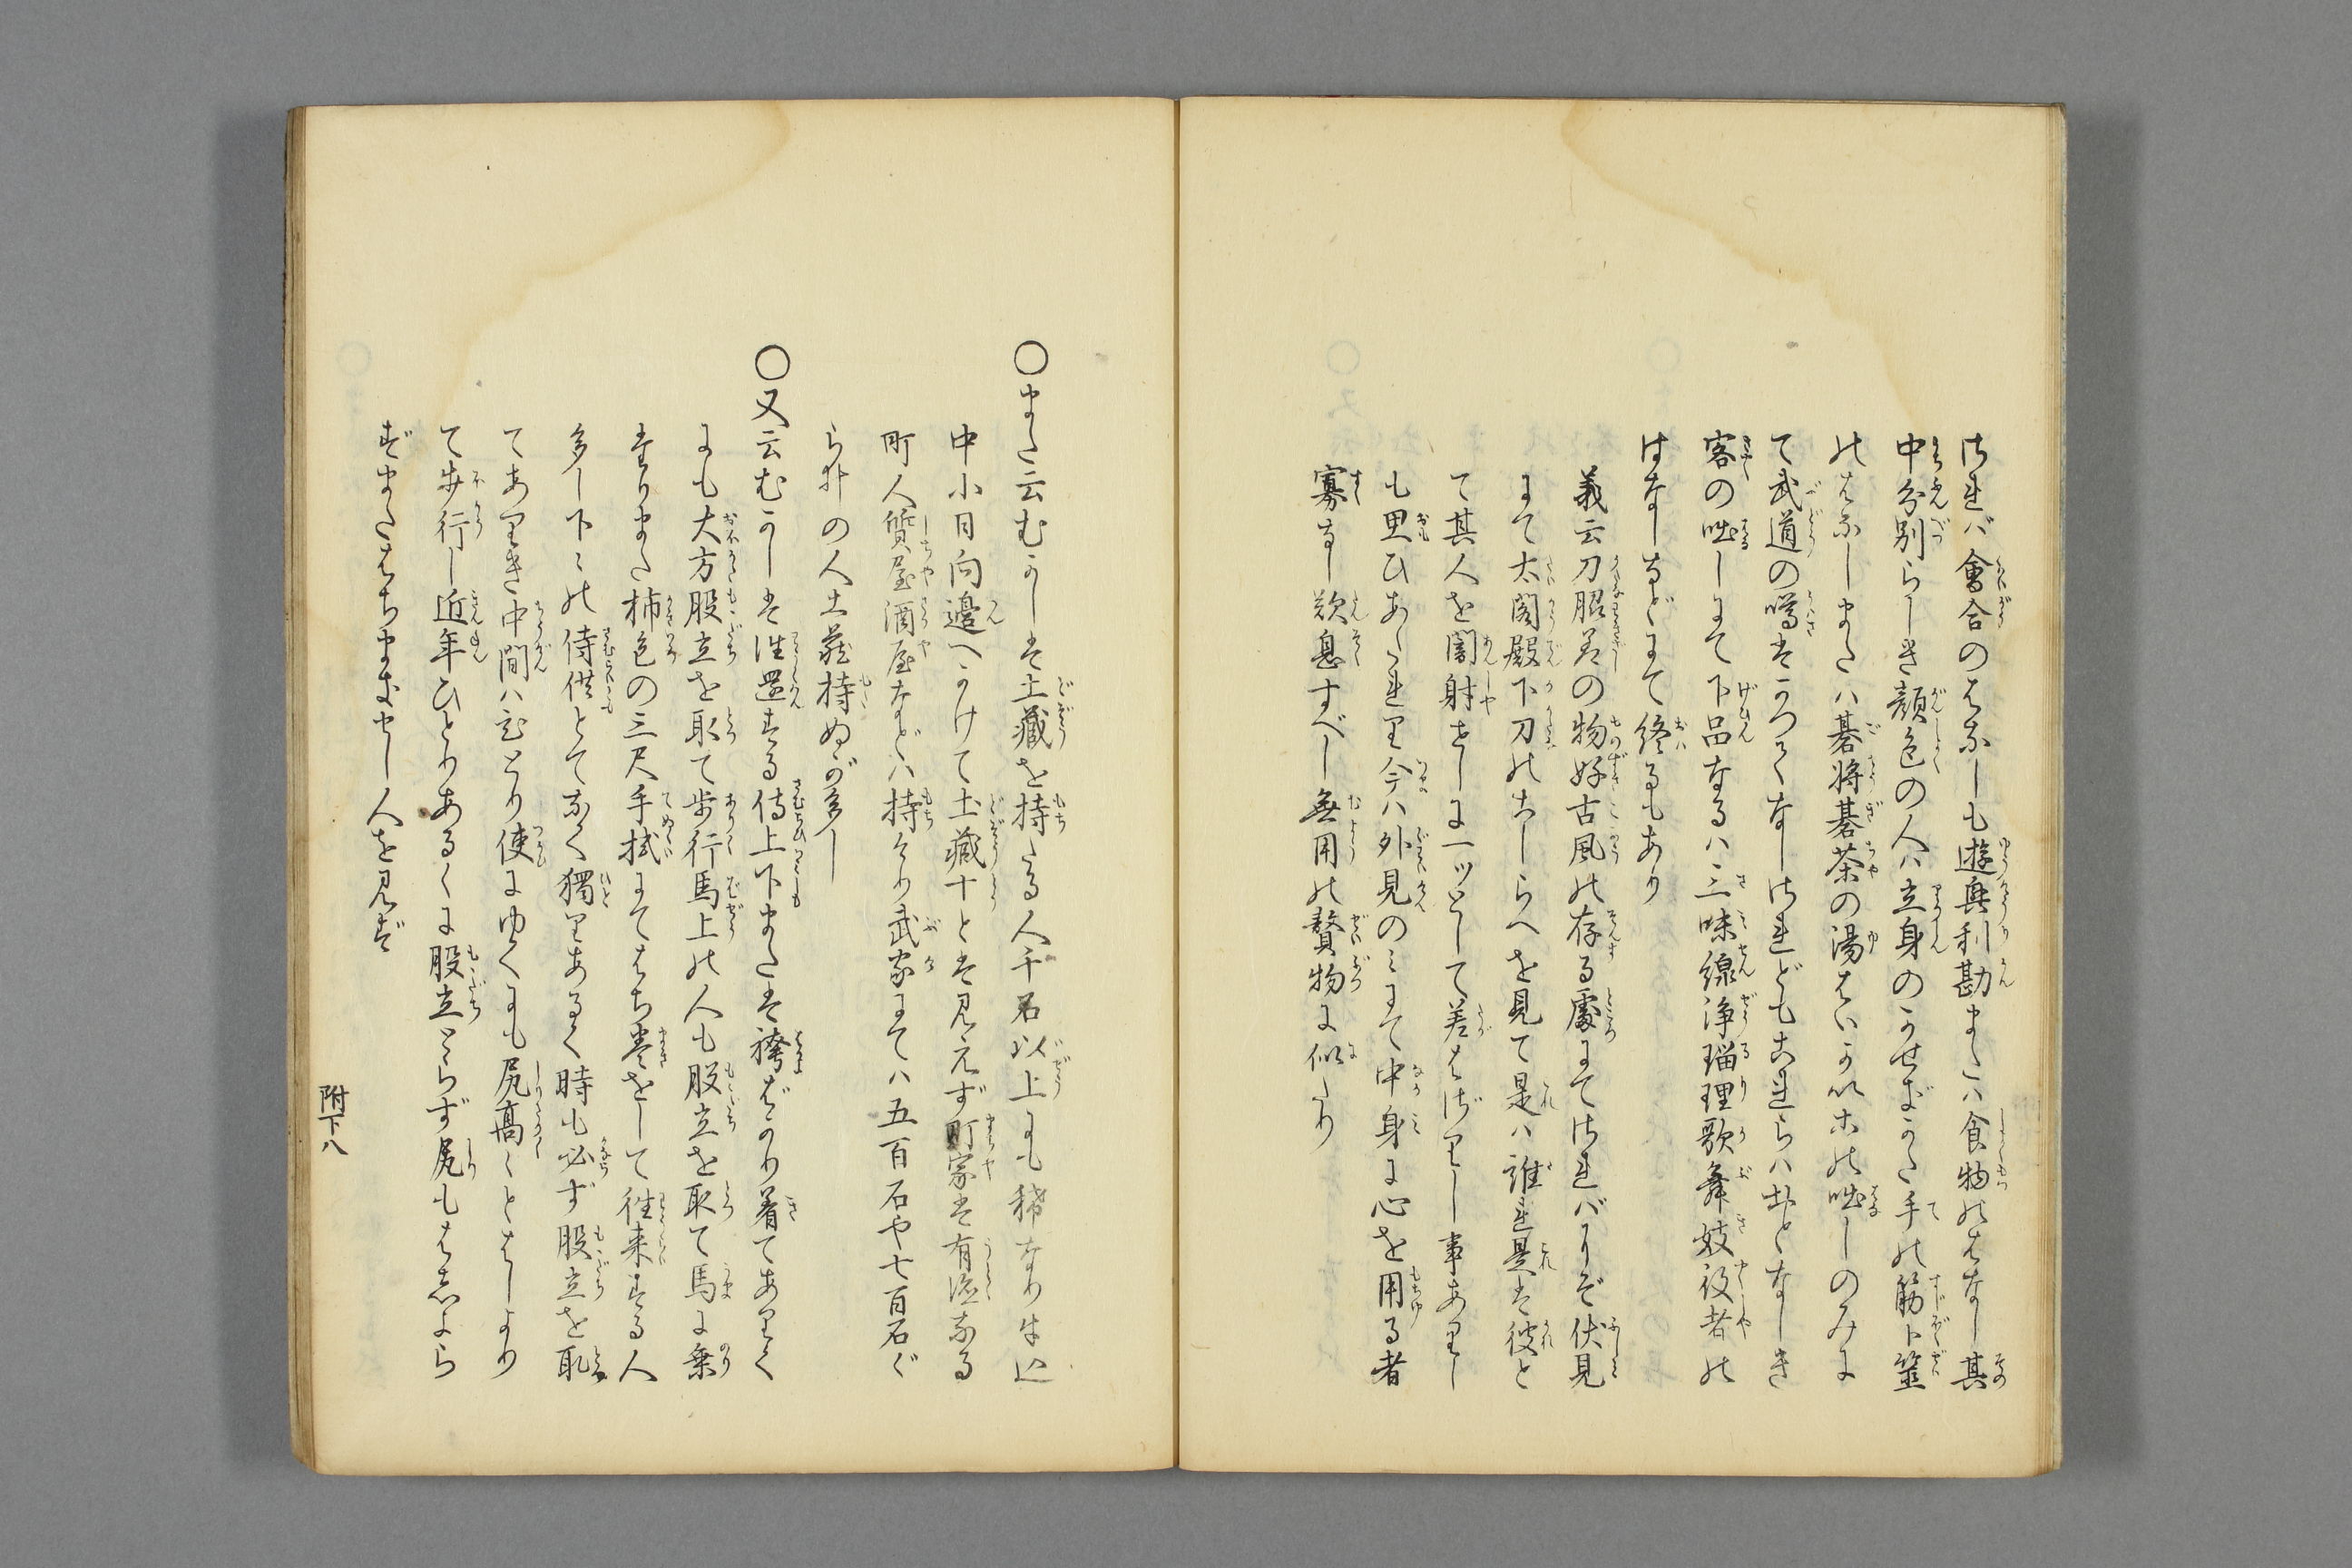 けれバ會合のはなしも遊興利勘または食物のはなし其
中分別らしき顔色の人ハ立身のかせぎかた手の筋卜筮
のはなしまたハ碁将碁茶の湯はいかい等の咄しのみに
て武道の噂はかつてなしけれどもこれらハまだなしき
客の咄しにて下品なるハ三味線浄瑠理歌舞妓役者の
はなしなどにて終るもあり
義云刀脇差の物好古風の存する處にてければりぞ伏見
にて太閤殿下刀のこしらへを見て是ハ誰是は彼と
て其人を闇射せしに一ツとして差はざりし事ありし
も思ひあたれり今ハ外見のミにて中身に心を用る者
寡なし歎息すべし無用の贅物に似たり
〇また云むかしは土藏を持たる人千石以上にも稀なり牛込
中小日向邊へかけて土藏十とは見えず町家は有徳なる
町人質屋酒屋などハ持けり武家にてハ五百石や七百石ぐ
らゐの人土藏持ぬが多し
〇又云むかしは往還する侍上下または袴ばかり着てあるく
にも大方股立を取て歩行馬上の人も股立を取て馬に乗
たりまた柿色の三尺手拭にてはち巻をして往来する人
多し下々の侍供とてなく獨りあるく時も必ず股立を取
てあるき中間ハ記とり使にゆくにも尻高くとはしより
て歩行し近年ひとりあるくに股立とらず尻もはしよら
ずまたはちまきせし人を見ず
附下八